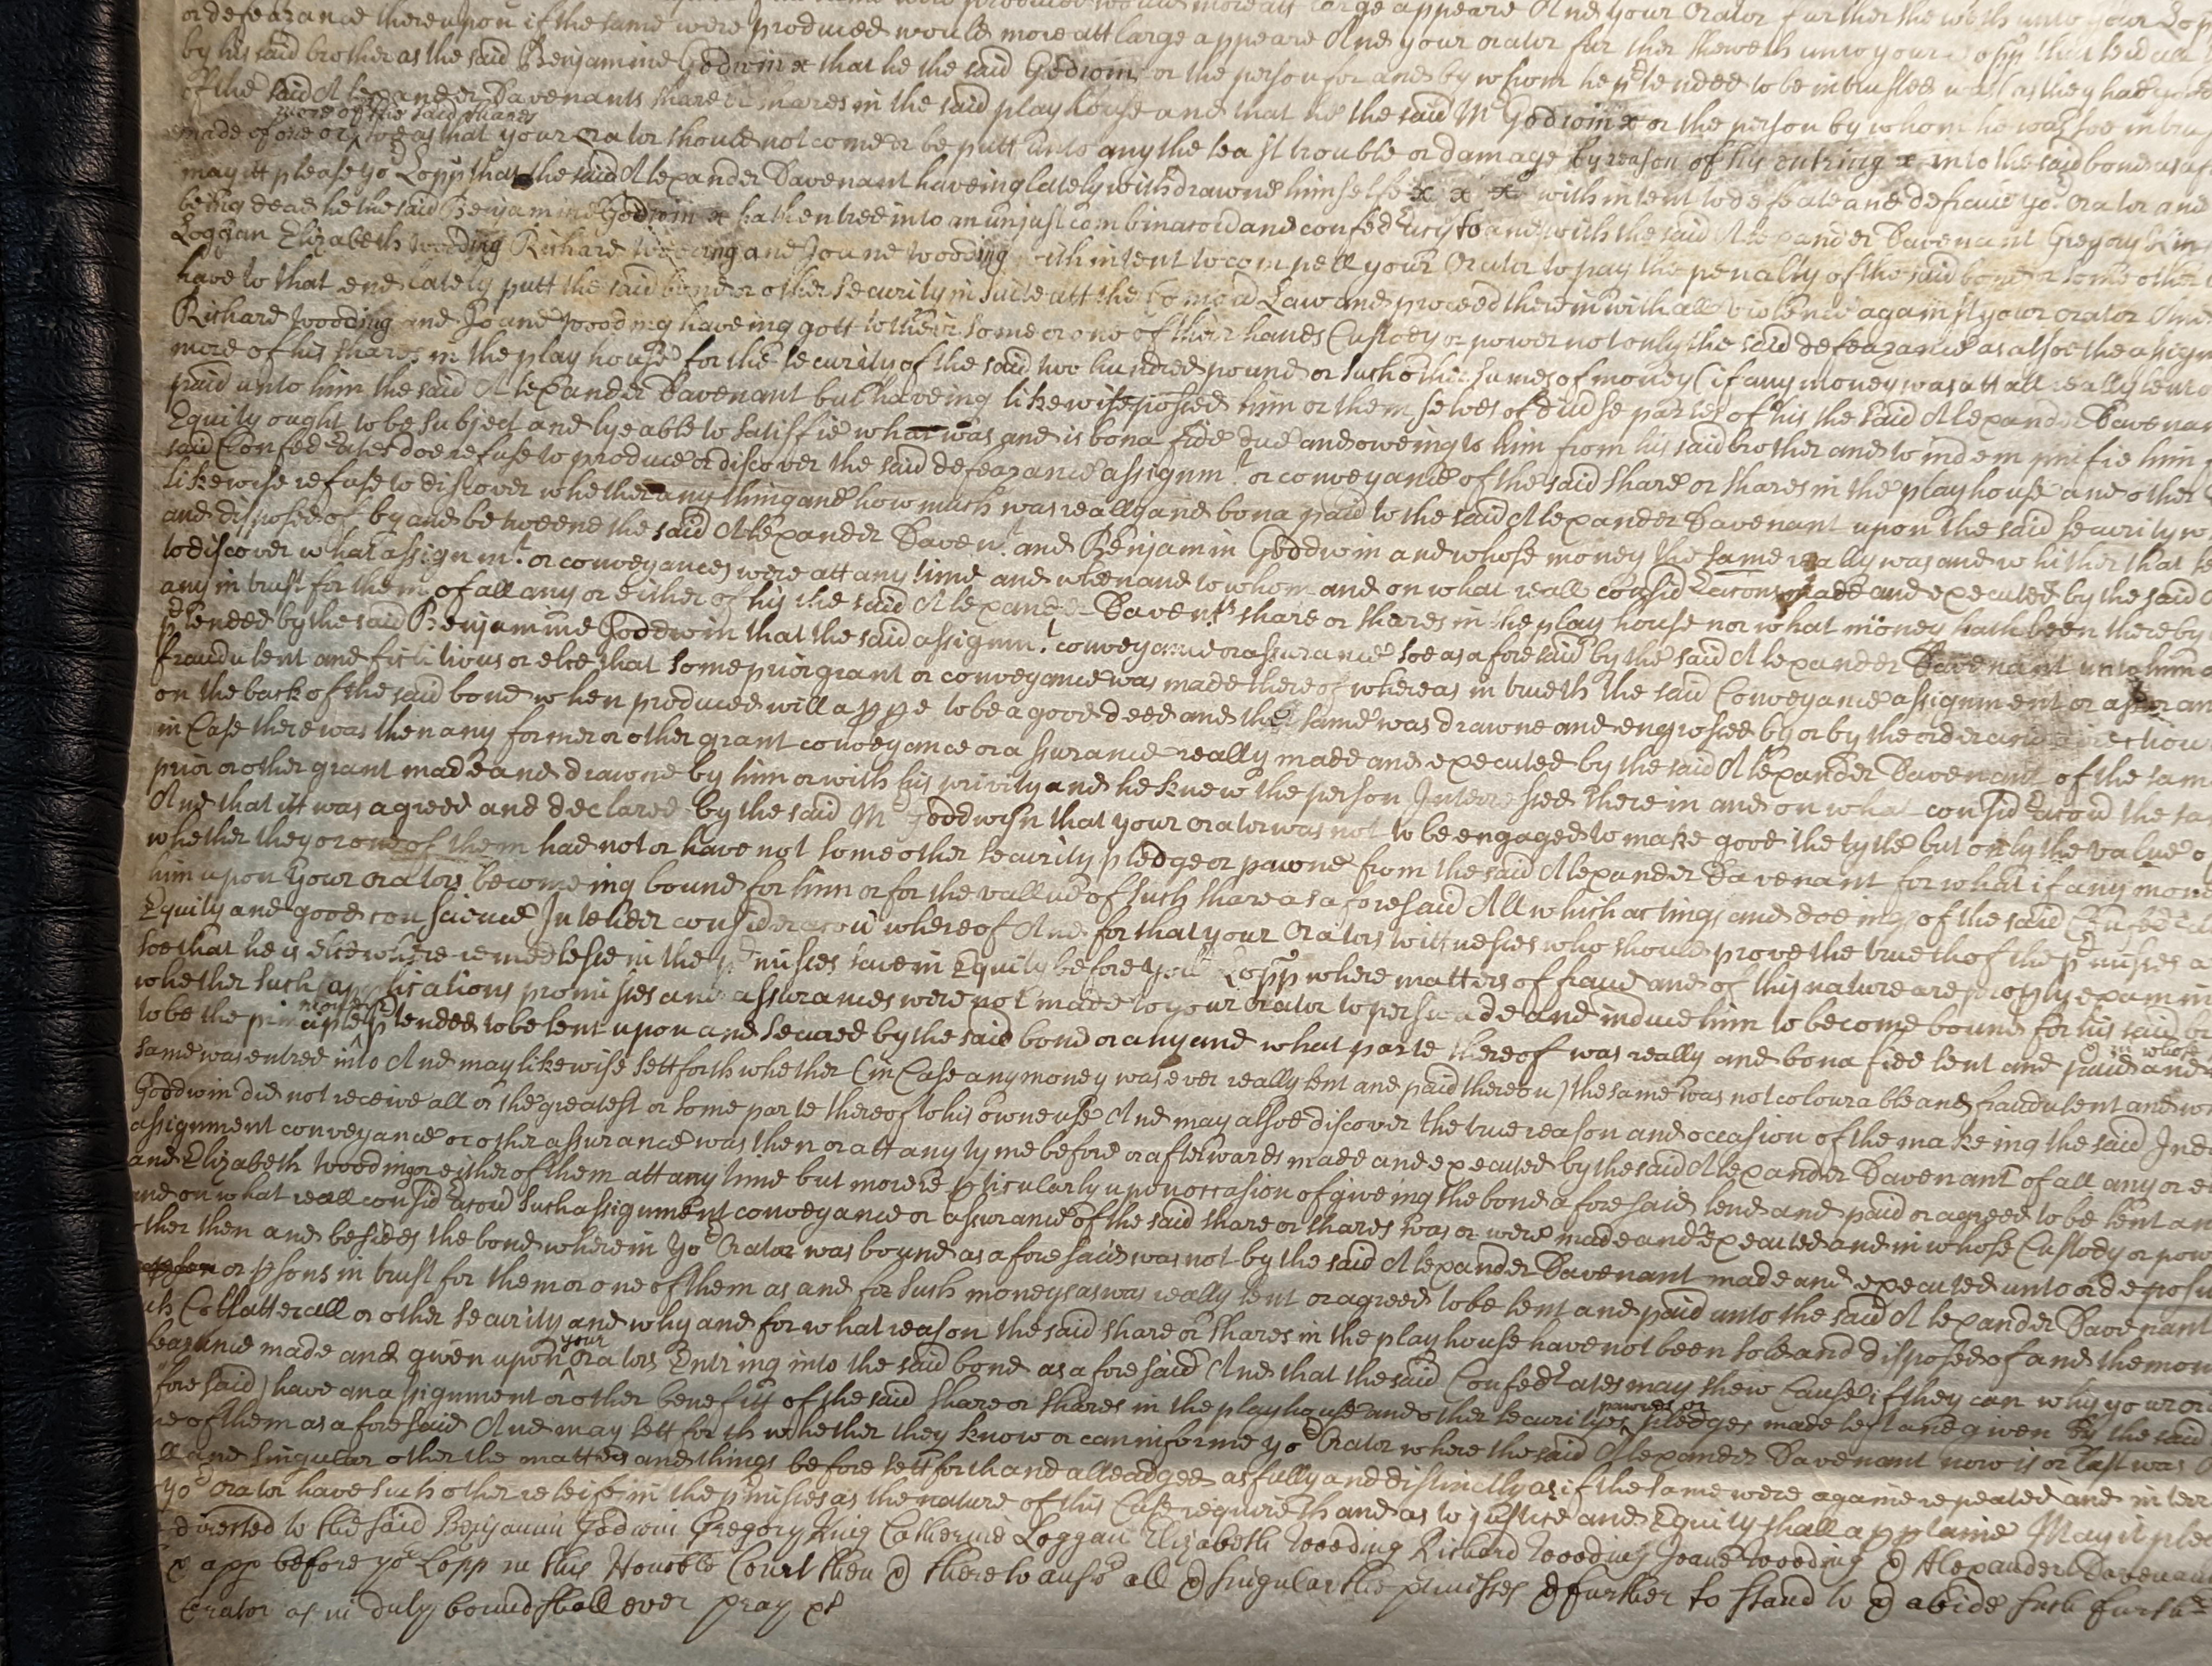 or defeazance thereupon if the same were produced would more att large appeare And your Orator further sheweth unto your Lopp that
by his said brother as the said Benjamine Godwin x that he the said Godwin or the person for and by whom he p'tended to be intrusted
of the said Alexander Davenants share or shares in the said play house and that he the said Mr Godwin x or the person by whom he was soe
more of the said shares
made of one or soe as that your Orator should not come or be putt unto any the least trouble or damage by reason of his entring x into the said bond as
may itt please yor Lopp that the said Alexander Davenant haveing lately withdrawne himselfe x x x with intent to defeate and defraud yor Orator and
being dead he the said Benjamine Godwin x hath entred into an unjust combinacion and confed'acy to and with the said Alexander Davenant Gregory
Loggan Elizabeth Wooding Richard Wooding and Joane Wooding with intent to compell your Orator to pay the penalty of the said bond or some other
have to that end lately putt the said bond or other security in suite att the Comon Law and proceed therein with all violence against your Orator And
Richard Wooding and Joane Wooding haveing gott to their some or one of their hands Custody or power not only the said defeazance as alsoe the
more of his shares in the play house for the security of the said two hundred pound or such other sumes of money (if any money was att all really
paid unto him the said Alexander Davenant but haveing likewise him or themselves of of his the said Alexander
Equity ought to be subject and lyeable to satisfie what was and is bona fide due and oweing to him from his said brother and to indempnifie him
said Confed'ates doe refuse to produce or discover the said defeazance assignmt. or conveyance of the said share or shares in the playhouse and other
likewise refuse to discover whether any thing and how much was really and bona paid to the said Alexander Davenant upon the said security
and disposed of by and betweene the said Alexander Davent. and Benjamin Goddwin and whose money the same really was and whither that
to discover what assignmt. or conveyances were att any time and when and to whom and on what reall consid'acons made and executed by the said
any in trust for them of all any or either of his the said Alexander Davents share or shares in the play house nor what money hath been thereby
p'tended by the said Benjamine Goddwin that the said assignmt. conveyance or assurance soe as aforesaid by the said Alexander Davenant unto him
fraudulent and fictitious or else that some prior grant or conveyance was made thereof whereas in trueth the said Conveyance assignment or
on the back of the said bond when produced will appe to be a good deed and the same was drawne and engrossed by or by the order and direction
in Case there was then any former or other grant conveyance or assurance really made and executed by the said Alexander Davenant of the
prior or other grant made and drawne by him or with his privity and he knew the person Interressed there in and on what consid'acon the
And that itt was agreed and declared by the said Mr Goddwin that your orator was not to be engaged to make good the tytle but only the value
whether they or one of them had not or have not some other security pledge or pawne from the said Alexander Davenant for what if any
him upon your Orators becomeing bound for him or for the vallue of such share as aforesaid All which actings and doeings of the said
Equity and good conscience In tender consideracon whereof And for that your Orators wittnesses who should prove the trueth of the p'misses
soe that he is elsewhere remedlesse in the p'misses save in Equity before yor Lopp where matters of fraud and of this nature are properly
whether such applications promisses and assurances were not made to your Orator to perswade and induce him to become bound for his said
moneys
to be the principle p'tended to be lent upon and secured by the said bond or any and what parte thereof was really and bona fide lent and paid and
in whose
same was entred into And may likewise sett forth whether (in Case any money was ever really lent and paid thereon) the same was not colourable and fraudulent and
Goddwin did not receive all or the greatest or some parte thereof to his owne use And may alsoe discover the true reason and occasion of the makeing the said
assignment conveyance or other assurance was then or att any tyme before or afterwards made and executed by the said Alexander Davenant of all any or
and Elizabeth Wooding or either of them att any time but more p'ticularly upon occasion of giveing the bond aforesaid lend and paid or agreed to be lent
and on what reall consid'acon such assignment conveyance or assurance of the said share or shares was or were made and executed and in whose Custody or
other then and besides the bond wherein yor Orator was bound as aforesaid was not by the said Alexander Davenant made and executed unto or
or p'sons in trust for them or one of them as and for such moneys as was really lent or agreed to be lent and paid unto the said Alexander Davenant
Collatterall or other security and why and for what reason the said share or shares in the playhouse have not been sold and disposed of and the
your
made and given upon Orators Entring into the said bond as aforesaid And that the said Confed'ates may shew Cause if they can why your
foresaid) have an assignment or other benefitt of the said share or shares in the playhouse and other securityes
pawnes or
pledges made left and given by the said
of them as aforesaid And may sett forth whether they know or can informe yor Orator where the said Alexander Davenant now is or last was
all and singular other the matters and things before sett forth and alleadged as fully and distinctly as if the same were againe repeated and
yor Orator have such other releife in the p'misses as the nature of this Case requireth and as to justice and Equity shall appertaine May it
directed to the said Benjamin Godwin Gregory King Catherine Loggan Elizabeth Wooding Richard Wooding Joane Wooding & Alexander
& app before yor Lopp in this Honoble Court then & there to answ all & singular the p'misses & further to stand to & abide such
Orator as in duty bound shall ever pray &c